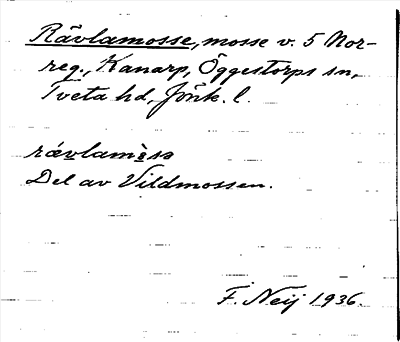 Rävlamosse, mosse v. 5 Nor-
reg., Kanarp, Öggestorps sn,
Tveta hd, Jönk. l.
Del av Vildmossen.
F. Neij 1936.